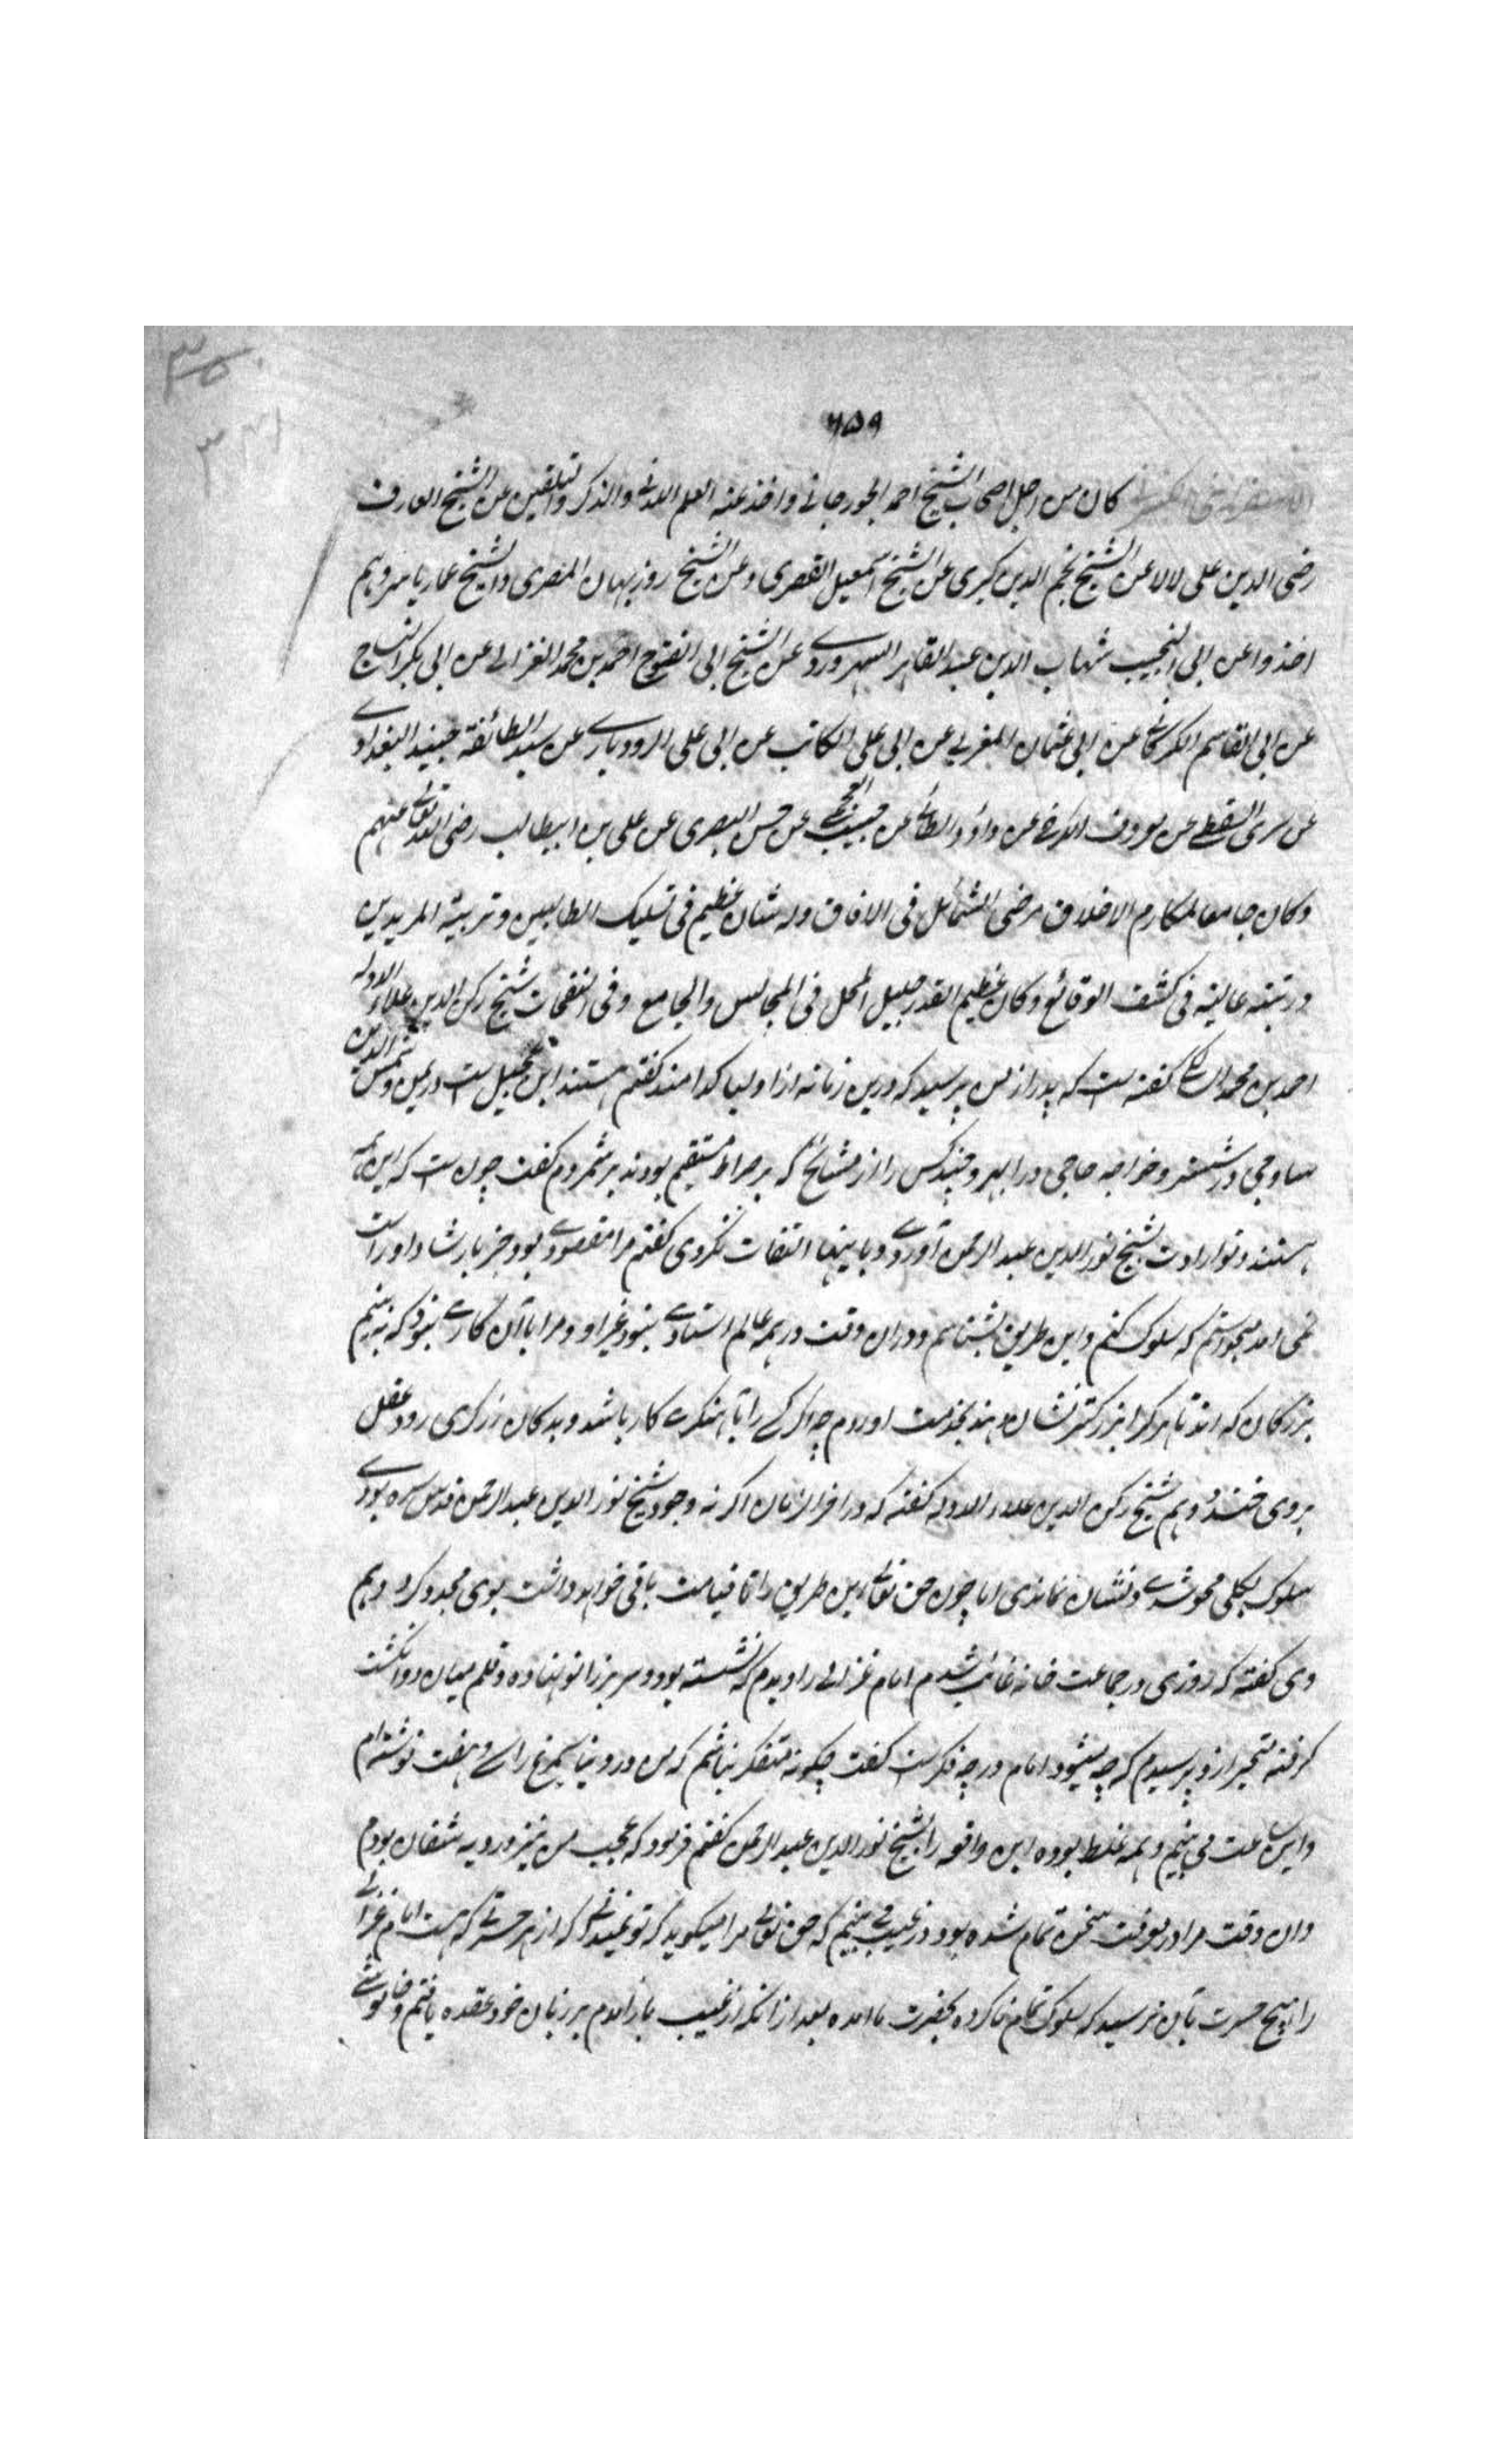 ٦٥٩
الاسفرایینی کان من اجل اصحاب الشیخ احمد الجورجانی واخذ عنه العلم اللدنی والذکر والتلقین عن الشیخ العارف
رضی الدین علی لالا عن الشیخ نجم الدین کبری عن الشیخ اسمعیل القصری وعن الشیخ روزبهان المصری والشیخ عمار یاسر وهم
اخذوا عن ابی النجیب شهاب الدین عبد القاهر السهروردے عن الشیخ ابی الفتوح احمد بن محمد الغزالے عن ابی بکر النساج
عن ابی القاسم الکرکانے عن ابی عثمان المغربے عن ابی علی الکاتب عن ابی علی الرودبارے عن سید الطائفة جنید البغدادے
عن سری السقطے عن معروف الکرخے عن داؤد الطائے عن حبیب العجمے عن حسن البصری عن علی بن ابیطالب رضی الله تعالے عنهم
وکان جامعا لمکارم الاخلاق مرضی الشمائل فی الافاق وله شان عظیم فی تسلیک الطالبین وتربیة المریدین
ورتبته عالیة فی کشف الوقائع وکان عظیم القدر جلیل المحل فی المجالس والمجامع وفی النفحات شیخ رکن الدین علاء الدوله
احمد بن محمد گفته است که پدر از من پرسید که درین زمانه از اولیا کدامند گفتم هستند ابن عجیل است در یمن وشمس الدین
ساوجی در ششتر وخواجه حاجی در ابهر وچند کس را از مشائخ که بر صراط مستقیم بودند برشمردم گفت چون ست که این همه
هستند وتو ارادت بشیخ نور الدین عبد الرحمن آوردے وباینها التفات نکردی گفتم مرا مقصودے بود جز بارشاد او راست
نمی امد میجوستم که سلوک کنم واین طریق بشناسم ودران وقت در همه عالم استادے نبود غیر او ومرا باآن کارے نبود که به بینم
بزرگان که اند تا هر کرا بزرگتر نشان دهند بخدمت او روم چه اگر کسے را باهنگرے کار باشد وبدکان زرگری رود عقل
بروی خندد وهم شیخ رکن الدین علاء الدوله گفته که در اخر الزمان اگر نه وجود شیخ نور الدین عبد الرحمن قدس سره بودے
سلوک بکلی محو شدے ونشان نماندی اما چون حق تعالے این طریق را تا قیامت باقی خواهد داشت بوی مجدد کرد وهم
وی گفته که روزی در جماعت خانه غائب شدم امام غزالی را دیدم که نشسته بود وسر بر زانو نهاده وقلم میان دو انگشت
گرفته متحیر ازو پرسیدم که چه میشود امام در چه فکر ست گفت چگونه متفکر نباشم که من در دنیا سیمرغ را سے وهفت نوشته ام
واین ساعت می بینم وهمه غلط بوده این واقعه را بشیخ نور الدین عبد الرحمن گفتم فرمود که عجب من نیز در دیه شقان بودم
وان وقت مرا در معرفت سخن تمام شده بود در غیب مے بینم که حق تعالے مرا میگوید که تو نمیدانی که از هر حسرتے که هست امام غزالے
را هیچ حسرت بآن نرسید که سلوک تمام ناکرده بحضرت ما امده بعد ازانکه از غیب باز آمدم بر زبان خود عقده یافتم وخاموشے